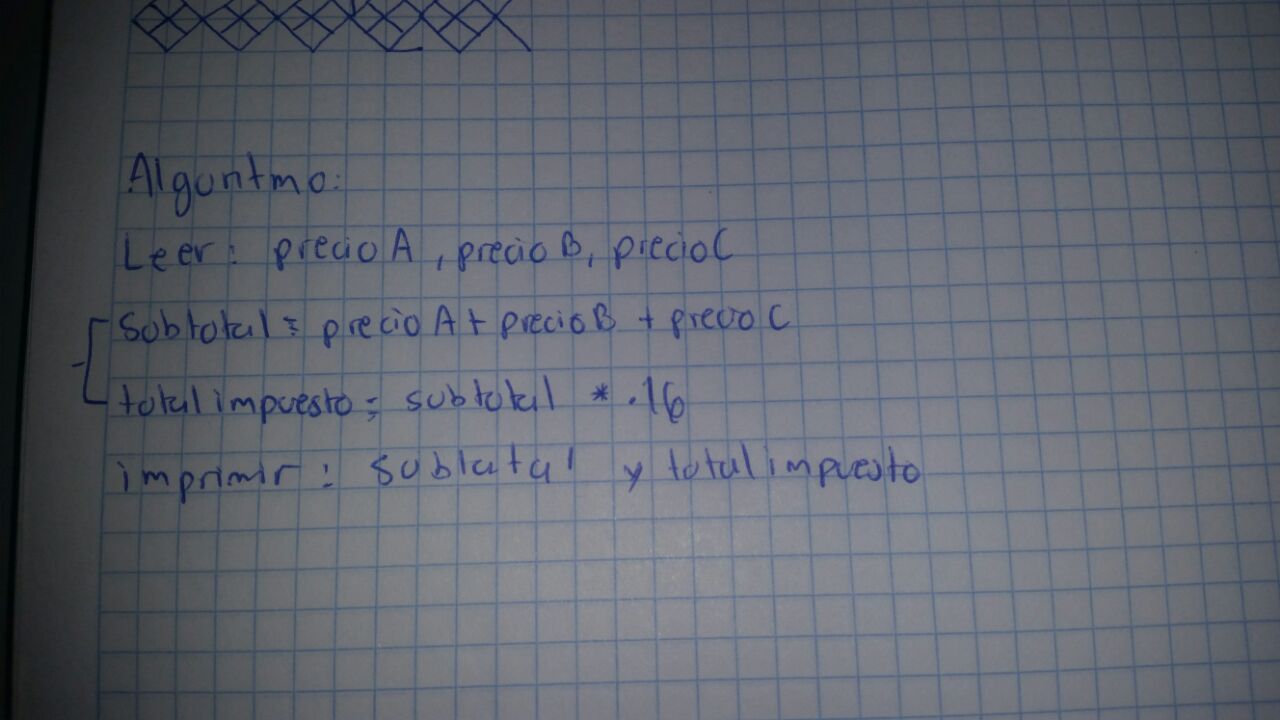 Algoritmo:
Leer: precio A, precio B, precio C
Subtotal = precio A + precio B + precio C
total impuesto = subtotal * .16
imprimir: subtotal y total impuesto